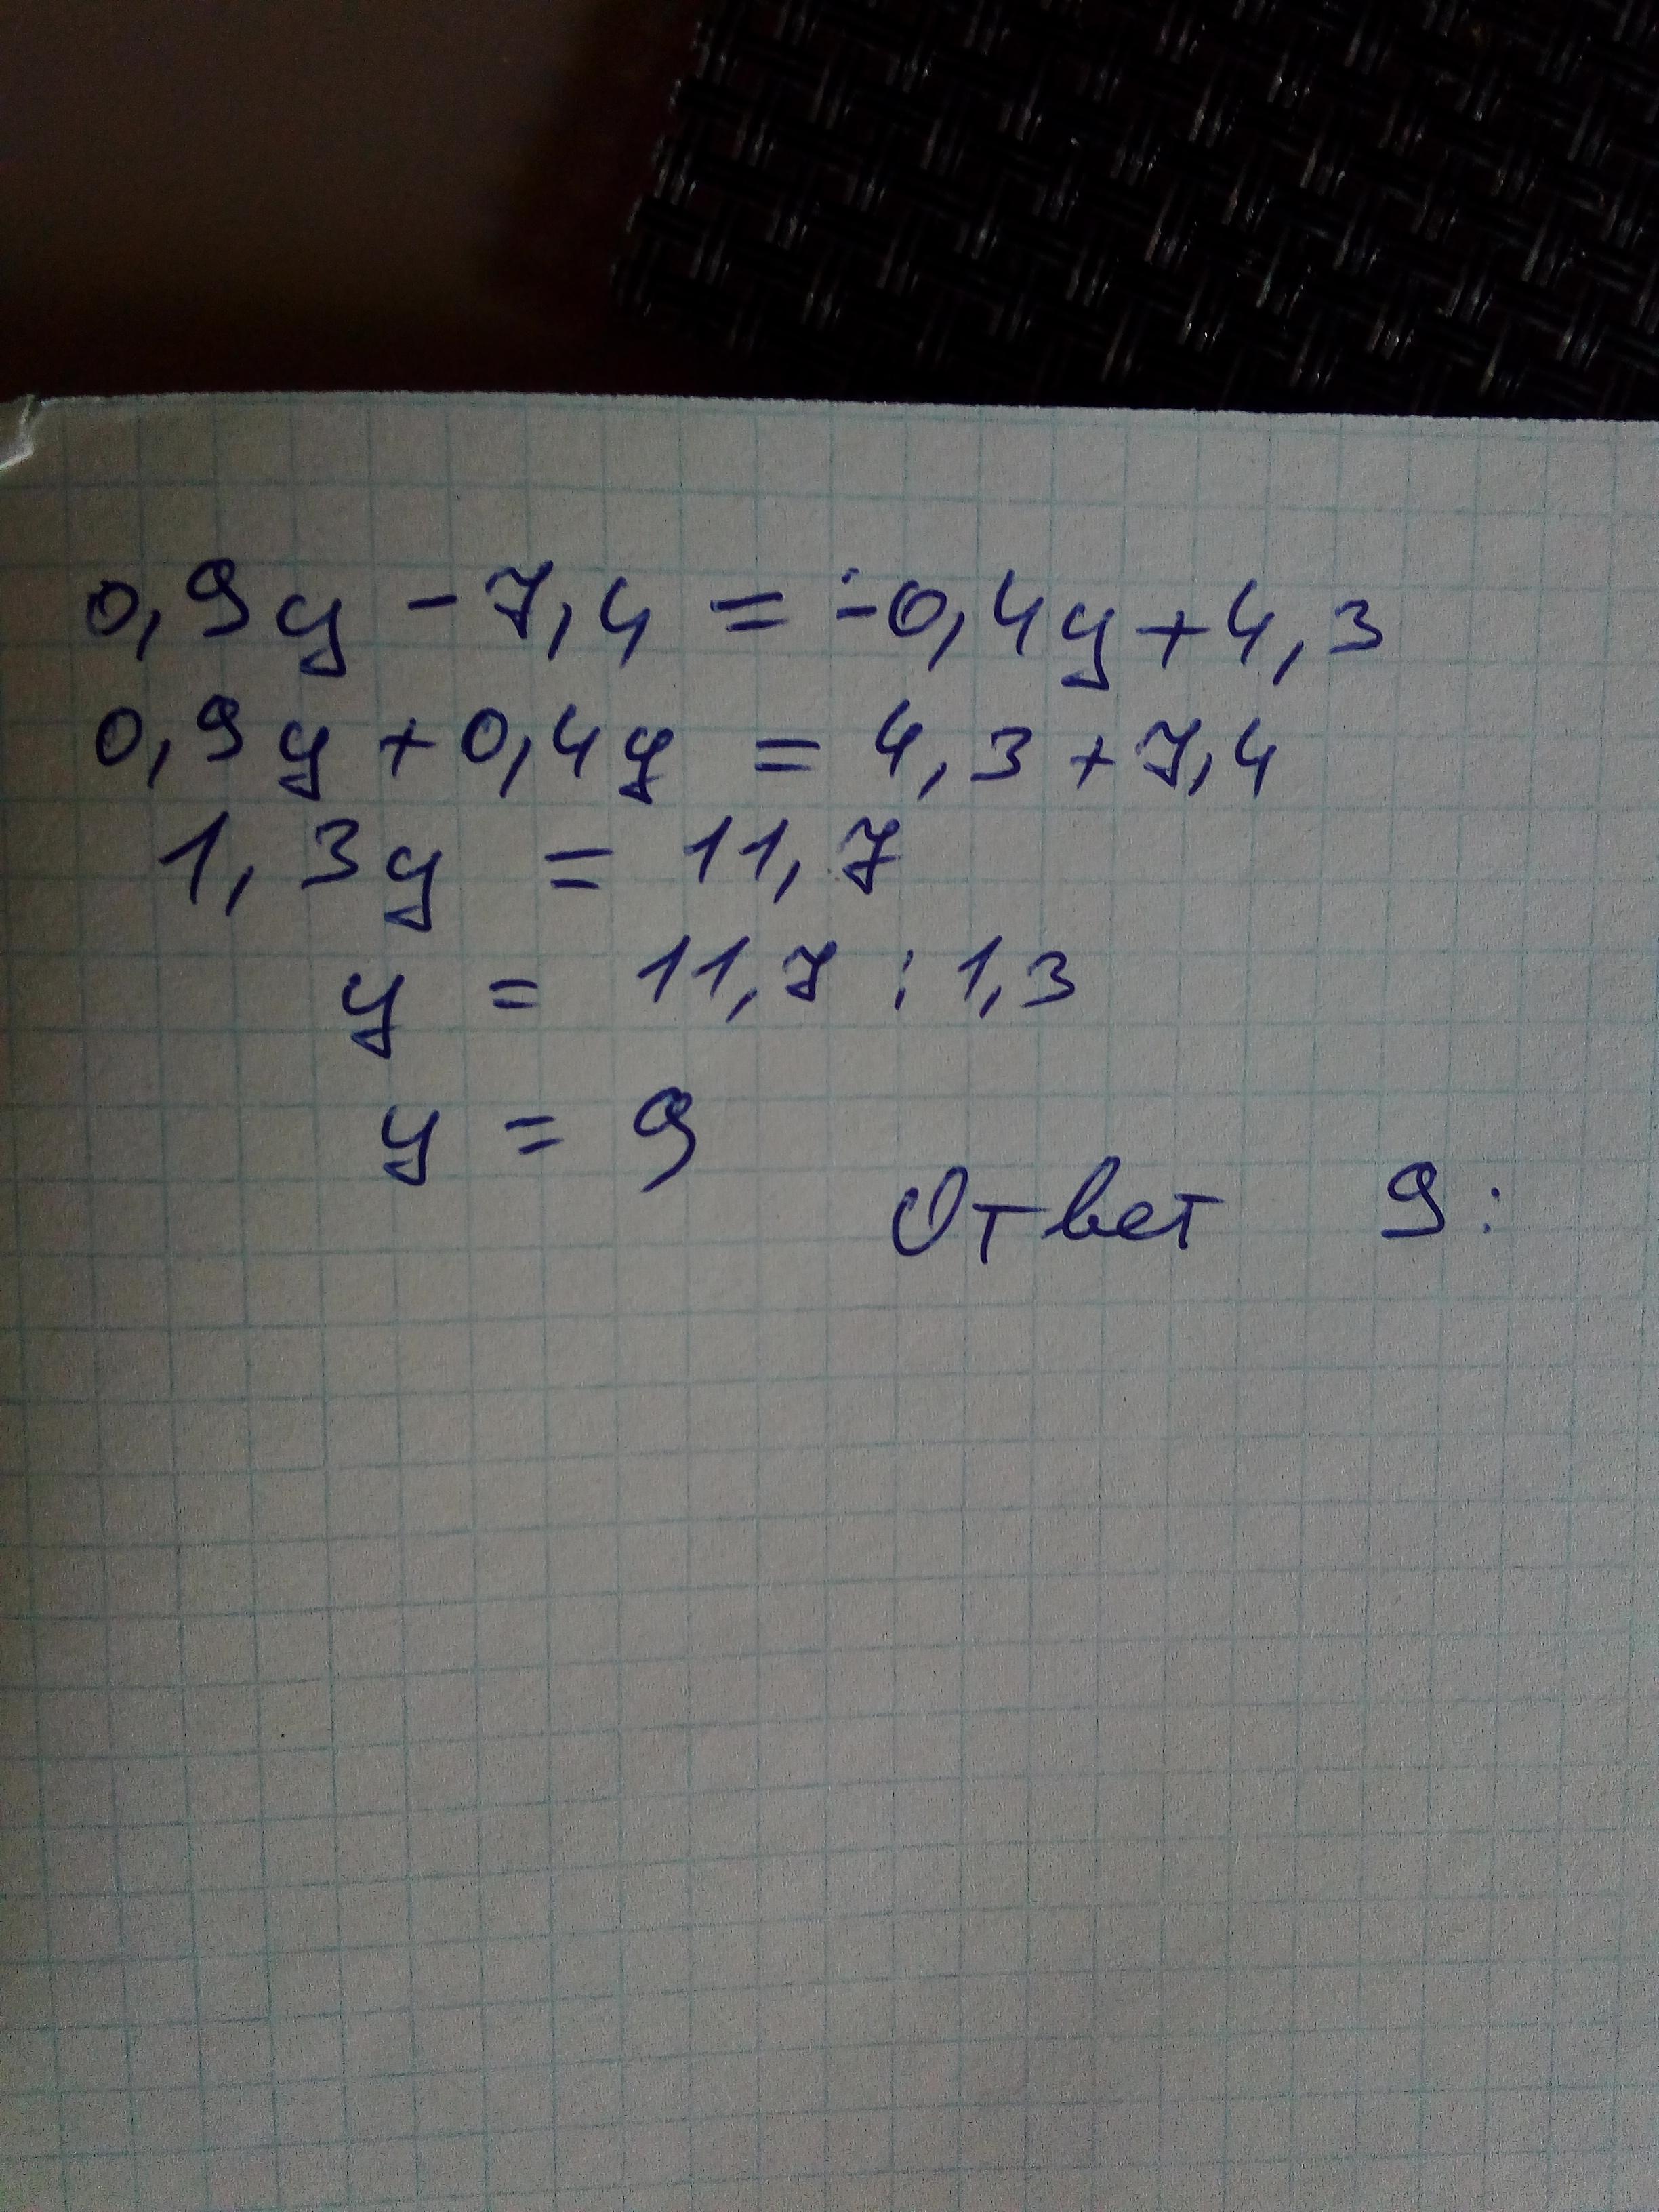 0,9y - 7,4 = -0,4y + 4,3
0,9y + 0,4y = 4,3 + 7,4
1,3y = 11,7
y = 11,7 : 1,3
y = 9
Ответ 9: